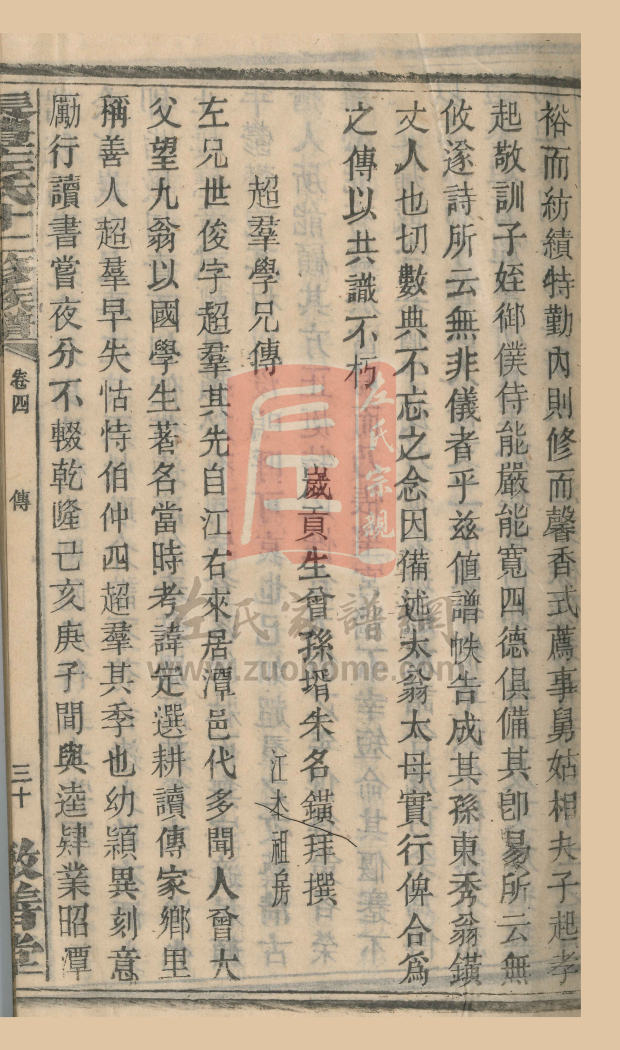 裕而紡績特勤內則修而馨香式薦事舅姑相夫子起孝
起敬訓子姪御僕侍能嚴能寬四德俱備其卽易所云無
攸遂詩所云無非儀者乎兹值譜帙告成其孫東秀翁鐄
丈人也切數典不忘之念因備述太翁太母實行俾合爲
之傳以共識不朽
歲貢生曾孫壻朱名鐄拜撰
超羣學兄傳
江木祖房
左兄世俊字超羣其先自江右來居潭邑代多聞人曾大
父望九翁以國學生著名當時考諱定選耕讀傳家鄉里
稱善人超羣早失怙恃伯仲四超羣其季也幼穎異刻意
勵行讀書嘗夜分不輟乾隆己亥庚子間與逵肄業昭潭
長豐左氏十二修族譜
卷四
傳
三十
敦善堂
左氏宗親
左氏家譜網
www.zuohome.com